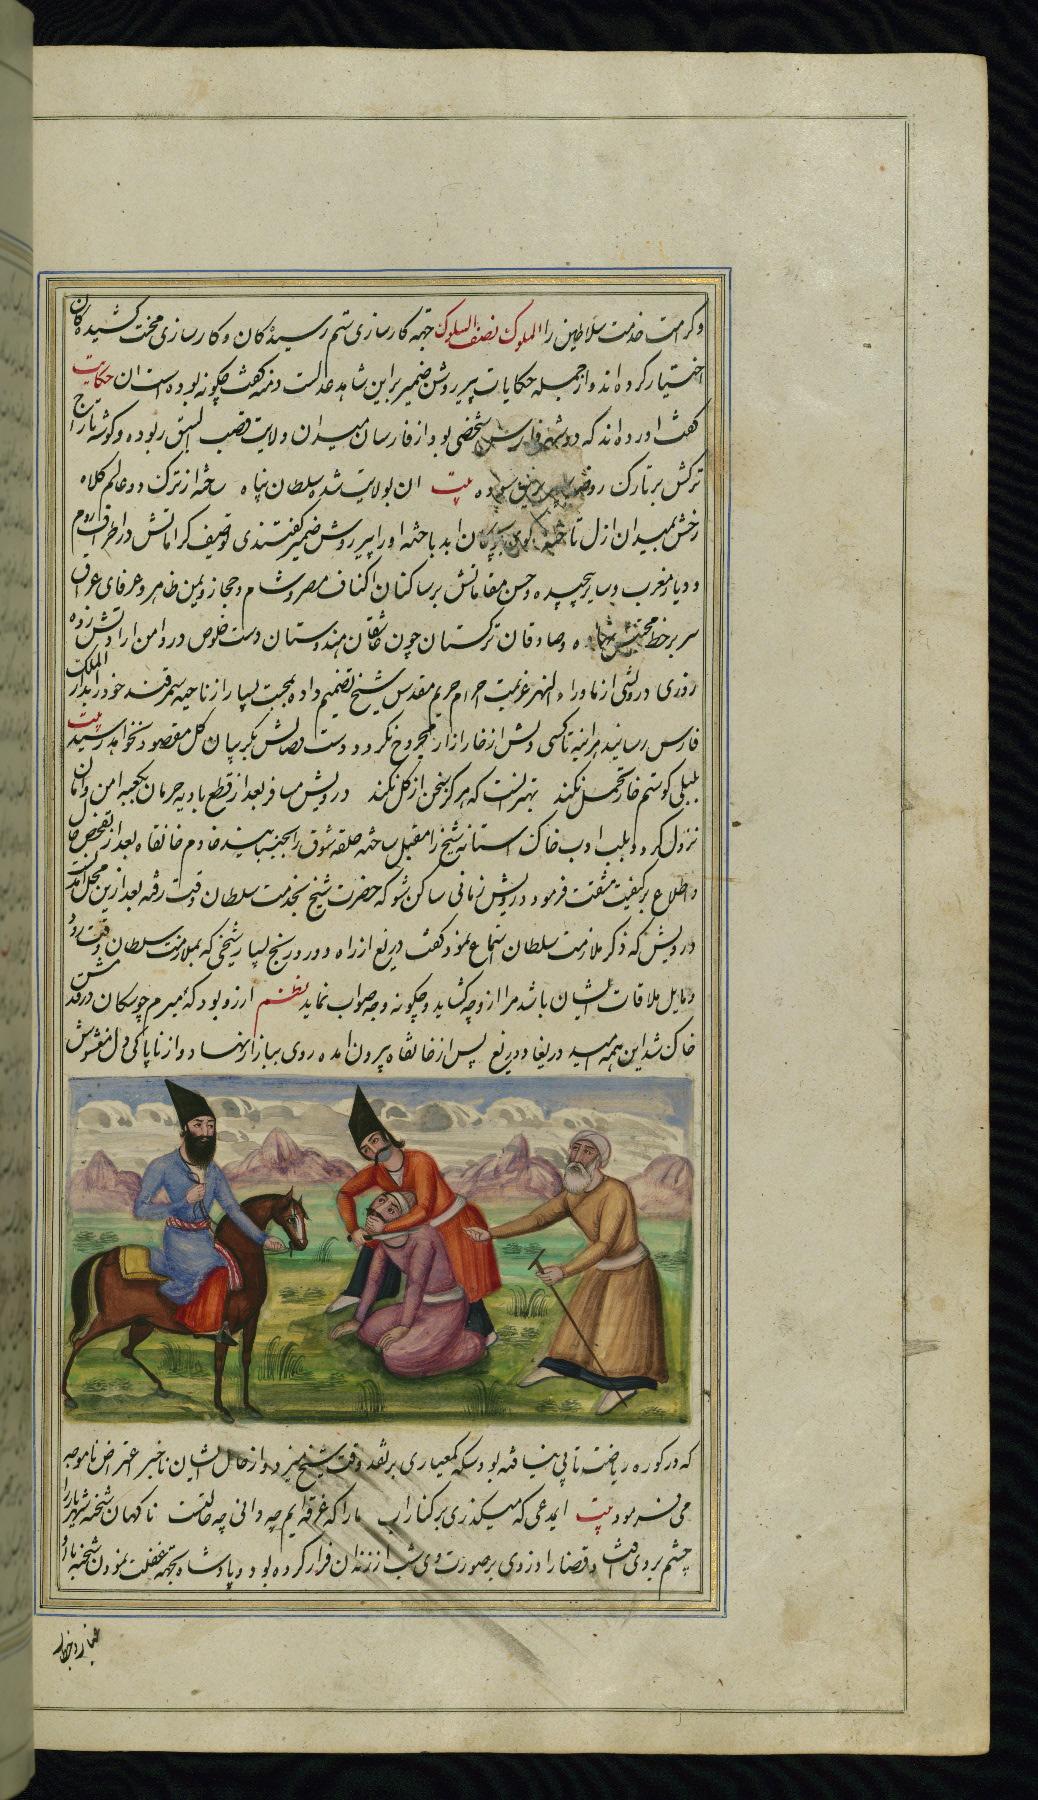 و کرامت خدمت سلاطین را الملوک نصف السلوک جهة کارسازی ستم رسیدگان و کارسازی محنت کشیده کان
اختیار کرده اند و از جمله حکایات پیر روشن ضمیر براین شاهد عدالت دمنه کفت چکونه بوده است ان حکایت
کفت اورده اند که در شهر فارس شخصی بود از فارسان میدان ولایت قصب السبق ربوده و کوشه تاج
ترکش بر تارک بیت ان بولایت شده سلطان پناه ساخته از ترک دو عالم کلاه
رخش بمیدان ازل تاخته کوی ابد باخته او را پیر روشن ضمیر کفتندی توصیف کراماتش در اطراف روم
و دیار مغرب و سایر پیچیده و حسن مقاماتش بر ساکنان اکناف مصر و شام و حجاز و یمن ظاهر و عرفای عراق
سر بر خط محبتش نهاده و صادقان ترکستان چون عاشقان هندوستان دست خلوص در دامن ارادتش زده
روزی درویشی از ماوراء النهر عزیمت احرام حریم مقدس شیخ تصمیم داده بمحبت بسیار از ناحیه سمرقند خود را بدار الملک
فارس رسانید هراینه تا کسی دلش از خار ازار مجروح نکردد دست وصالش بکریبان کل مقصود نخواهد رسید بیت
بلبلی کو ستم خار تحمل نکند بهتر انست که هرکز سخن از کل نکند درویش مسافر بعد از قطع بادیه حرمان بکعبه امن و امان
نزول کرد و بلب ادب خاک استانه شیخ را مقبل ساخته حلقه شوق را بجنبانید خادم خانقاه بعد از تفحص حال
و اطلاع بر کیفیت مشقت فرمود درویش زمانی ساکن شو که حضرت شیخ بخدمت سلطان وقت رفته بعد از این محل امدنست
درویش که ذکر ملازمت سلطان استماع نمود کفت دریغ از راه دور و رنج بسیار شیخی که بملازمت سلطان وقت رود
و مایل ملاقات ایشان باشد مرا از وچه کشاید و چکونه وجه صواب نماید نظم ارزو بود که میرم چو سکان در قدمش
خاک شد این همه امید دریغا و دریغ پس از خانقاه بیرون امده روی ببازار نهاد و از ناپاکی دل مغشوش
که در کوره ریاضت تابی نیافته بود سکه کمعیاری بر نقد وقت شیخ میزد و از حال ایشان ناخبر اعتراض ناموجه
می فرمود بیت ایمدعی که میکذری بر کنار اب ما را که غرقه ایم چه دانی چه حالتست ناکهان شحنه شهر را
چشم بر وی افتاد قضا را دزدی بر صورت وی شب از زندان فرار کرده بود و پادشاه بجهة غفلت نمودن شحنه را